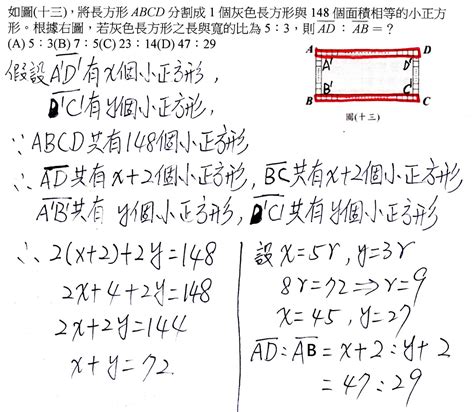 如圖(十三)，將長方形 ABCD 分割成 1 個灰色長方形與 148 個面積相等的小正方
形。根據右圖，若灰色長方形之長與寬的比為 5：3，則 AD：AB＝？
(A) 5：3(B) 7：5(C) 23：14(D) 47：29
A D
A' D'
B' C'
B C
圖(十三)
假設A'D'有x個小正方形，
D'C'有y個小正方形，
∵ABCD共有148個小正方形
∴AD共有x+2個小正方形，BC共有x+2個小正方形，
A'B'共有 y個小正方形，D'C'共有y個小正方形
∴ 2(x+2)+2y=148
2x+4+2y=148
2x+2y=144
x+y=72
設 x=5r，y=3r
8r=72⇒r=9
x=45，y=27
AD：AB=x+2：y+2
=47：29